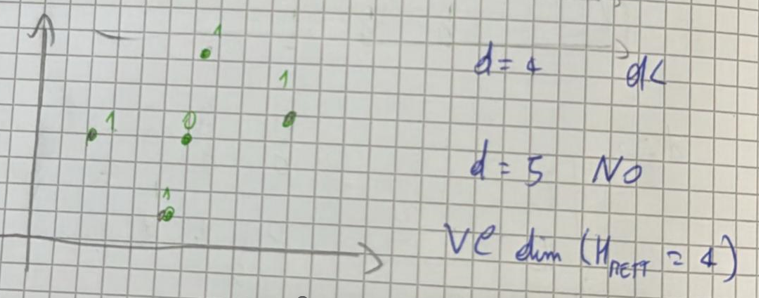 1
1
1
0
1
d = 4 → OK
d = 5 NO
VC dim (H_RETT = 4)